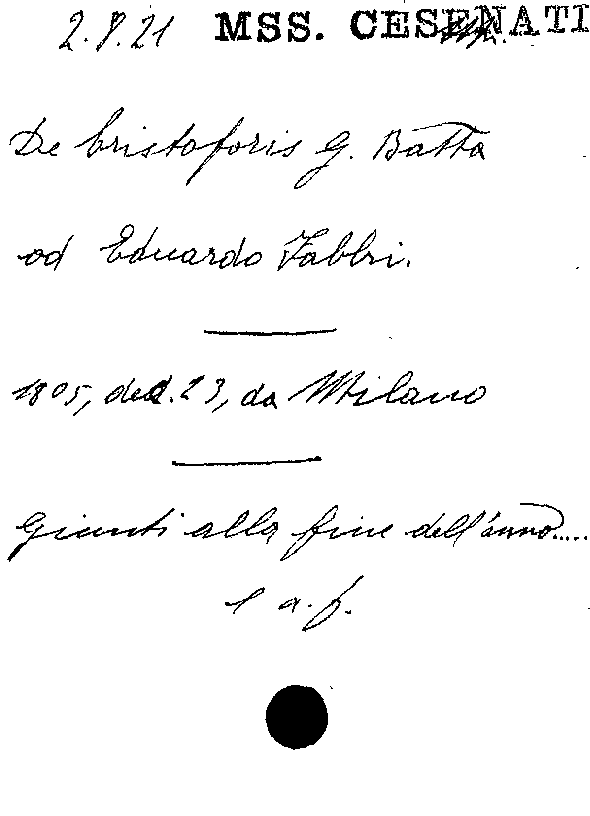 2.8.21 MSS. CESENATI
De Cristoforis G. Batta
ad Eduardo Fabbri.
1805, dec. 23, da Milano
Giunti alla fine dell'anno.....
1 a.f.